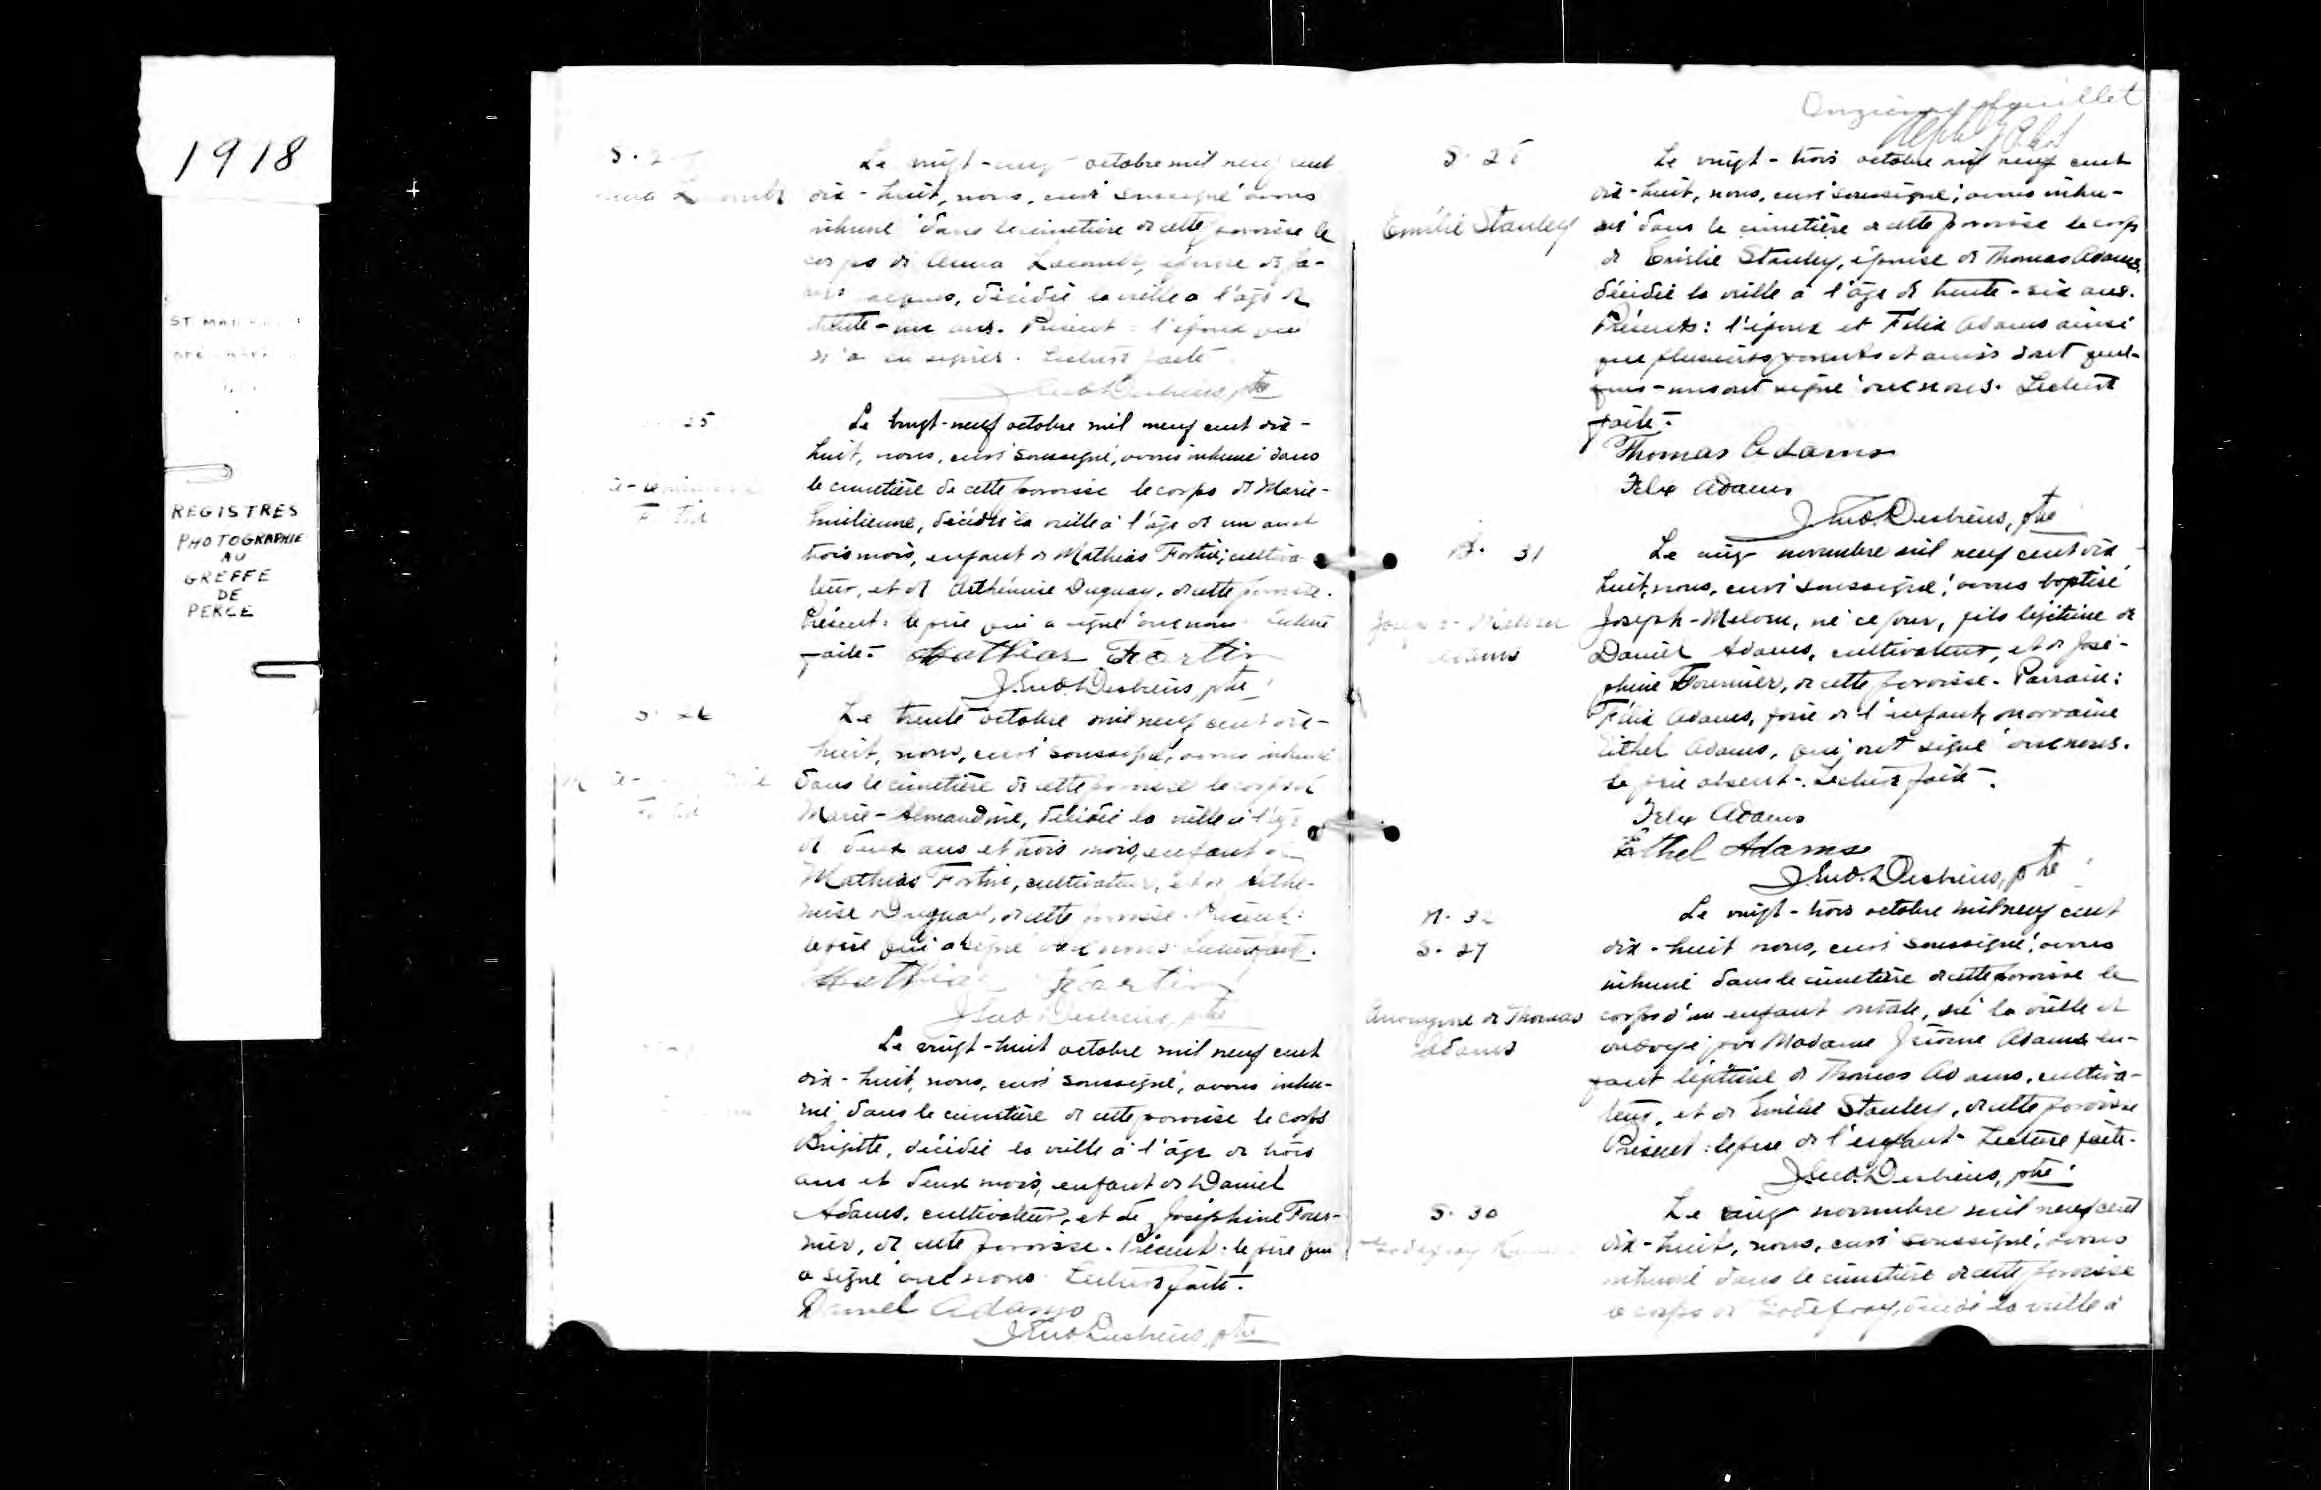 1918
REGISTRES
PHOTOGRAPHIE
AU
GREFFE
DE
PERCÉ
Le vingt-cinq octobre mil neuf cent
dix-huit, nous, curé soussigné avons
inhumé dans le cimetière de cette paroisse le
corps de Anna Lacombe, épouse de
décédée la veille à l'âge de
ans. Présent : l'époux qui
n'a su signer. Lecture faite
Desbiens, ptre
25
Le vingt-neuf octobre mil neuf cent dix-
huit, nous, curé soussigné, avons inhumé dans
le cimetière de cette paroisse le corps de Marie-
Emilienne, décédée la veille à l'âge de un an et
trois mois, enfant de Mathias Fortin, cultiva-
teur, et de Arthémise Duguay, de cette paroisse.
Présent : le père qui a signé avec nous. Lecture
faite. Mathias Fortin
Desbiens, ptre
Le trente octobre mil neuf cent dix-
huit, nous, curé soussigné, avons inhumé
dans le cimetière de cette paroisse le corps de
Marie-Almandine, décédée la veille à l'âge
de deux ans et trois mois, enfant de
Mathias Fortin, cultivateur, et de Arthé-
mise Duguay, de cette paroisse. Présent :
le père qui a signé avec nous. Lecture faite.
Mathias Fortin
Desbiens, ptre
Le vingt-huit octobre mil neuf cent
dix-huit, nous, curé soussigné, avons inhu-
mé dans le cimetière de cette paroisse le corps
Brigitte, décédée la veille à l'âge de trois
ans et deux mois, enfant de Daniel
Adams, cultivateur, et de Joséphine Four-
nier, de cette paroisse. Présent : le père qui
a signé avec nous. Lecture faite.
Daniel Adams
Desbiens, ptre
Onzième feuillet
Le vingt-trois octobre mil neuf cent
dix-huit, nous, curé soussigné, avons inhu-
Emélie Stanley mé dans le cimetière de cette paroisse le corps
de Emélie Stanley, épouse de Thomas Adams,
décédée la veille à l'âge de trente-six ans.
Présents : l'époux et Félix Adams ainsi
que plusieurs parents et amis dont quel-
ques-uns ont signé avec nous. Lecture
faite.
Thomas Adams
Felix Adams
Desbiens, ptre
B. 31
Le cinq novembre mil neuf cent dix
huit, nous, curé soussigné, avons baptisé
Joseph-Melvin, né ce jour, fils légitime de
Adams Daniel Adams, cultivateur, et de José-
phine Fournier, de cette paroisse. Parrain :
Félix Adams, frère de l'enfant, marraine
Eithel Adams, qui ont signé avec nous.
Le père absent. Lecture faite.
Felix Adams
Ethel Adams
Desbiens, ptre
N. 32
Le vingt-trois octobre mil neuf cent
S. 27
dix-huit nous, curé soussigné, avons
inhumé dans le cimetière de cette paroisse le
Anonyme de Thomas corps d'un enfant mâle, né la veille et
Adams ondoyé par Madame Jérôme Adams en-
fant légitime de Thomas Adams, cultiva-
teur, et de Emélie Stanley, de cette paroisse
Présent : le père de l'enfant. Lecture faite.
Desbiens, ptre
S. 30
Le cinq novembre mil neuf cent
dix-huit, nous, curé soussigné, avons
inhumé dans le cimetière de cette paroisse
le corps de Godefroy, décédé la veille à